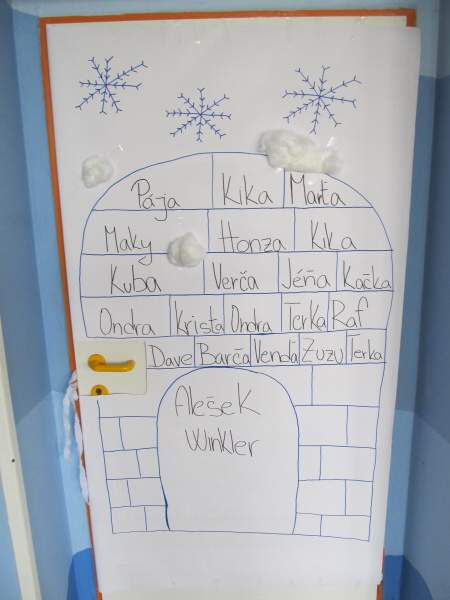 Pája Kika Marťa
Maky Honza Kika
Kuba Verča Jéňa Kačka
Ondra Krista Ondra Terka Raf
Dave Barča Venda Zuzu Terka
Alešek
Winkler